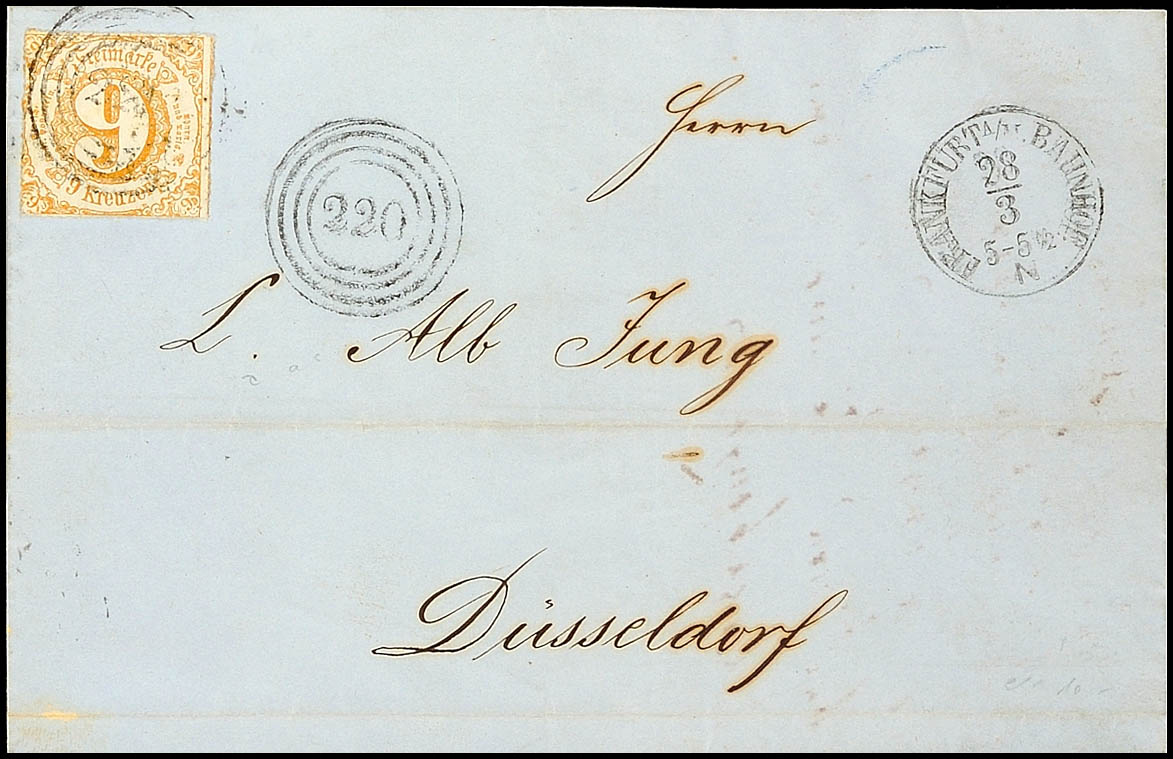 Freimarke
9
9 Kreuzer
220
FRANKFURT A/M. BAHNHOF
28
3
5-5 1/2
N
Herrn
L. Alb Jung
Düsseldorf